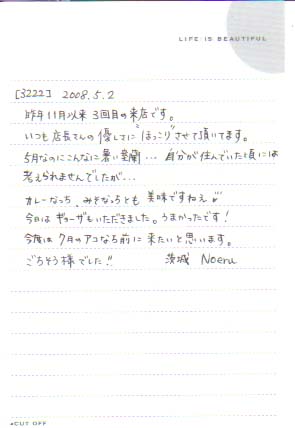 LIFE IS BEAUTIFUL
[3222] 2008.5.2
昨年11月以来 3回目の来店です。
いつも店長さんの優しさに"ほっこり"させて頂いてます。
5月なのにこんなに暑い室蘭… 自分が住んでいた頃には
考えられませんでしたが…
カレーなっち、みそなっちとも 美味ですねぇ
今日は ギョーザもいただきました。うまかったです!
今度は 7月のアコなち前に 来たいと思います。
ごちそう様でした!! 茨城 Noeru
CUT OFF